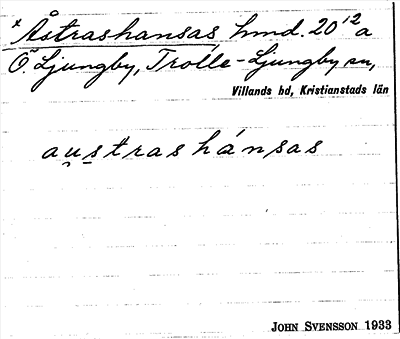 * Åstrashansas hmd. 20¹² a
Ö. Ljungby, Trolle-Ljungby sn,
Villands hd, Kristianstads län
au̯s̠trashánsas
JOHN SVENSSON 1933